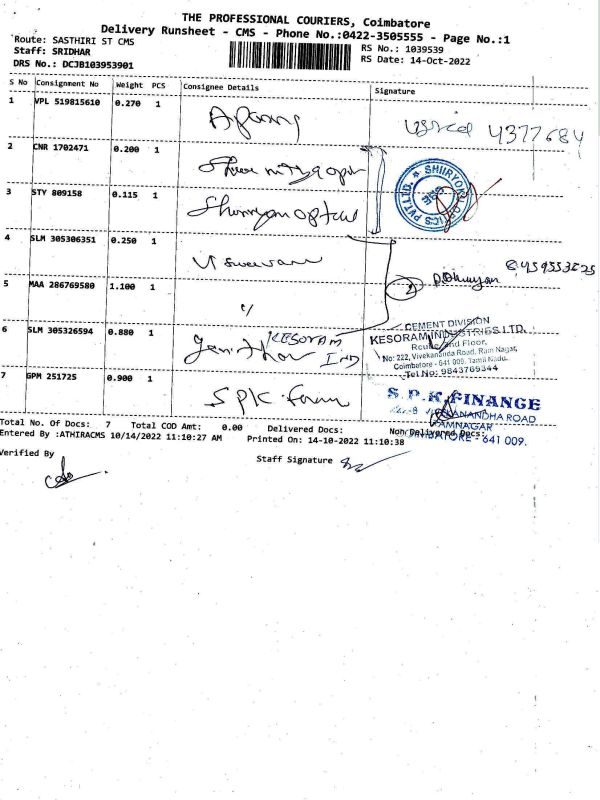 THE PROFESSIONAL COURIERS, Coimbatore
Delivery Runsheet - CMS - Phone No.:0422-3505555 - Page No.:1
Route: SASTHIRI ST CMS
RS No.: 1039539
Staff: SRIDHAR
RS Date: 14-Oct-2022
DRS No.: DCJB103953901
S No Consignment No Weight PCS Consignee Details Signature
1 VPL 519815610 0.270 1
4377684
2 CNR 1702471 0.200 1
SHIIRYON OPTICS PVT.LTD.
3 STY 809158 0.115 1
4 SLM 305306351 0.250 1
2
5 MAA 286769580 1.100 1
c/
6 SLM 305326594 0.880 1 KESORAM IND
CEMENT DIVISION
KESORAM INDUSTRIES LTD.
No: 222, Vivekananda Road, Ram Nagar,
Coimbatore - 641 009. Tamil Nadu.
Tel No: 9843769344
7 GPM 251725 0.900 1 SPK
S.P.K.FINANCE
VIVEKANANDHA ROAD
RAMNAGAR
COIMBATORE - 641 009.
Total No. Of Docs: 7 Total COD Amt: 0.00 Delivered Docs: Non Delivered Docs:
Entered By :ATHIRACMS 10/14/2022 11:10:27 AM Printed On: 14-10-2022 11:10:38
Verified By
Staff Signature